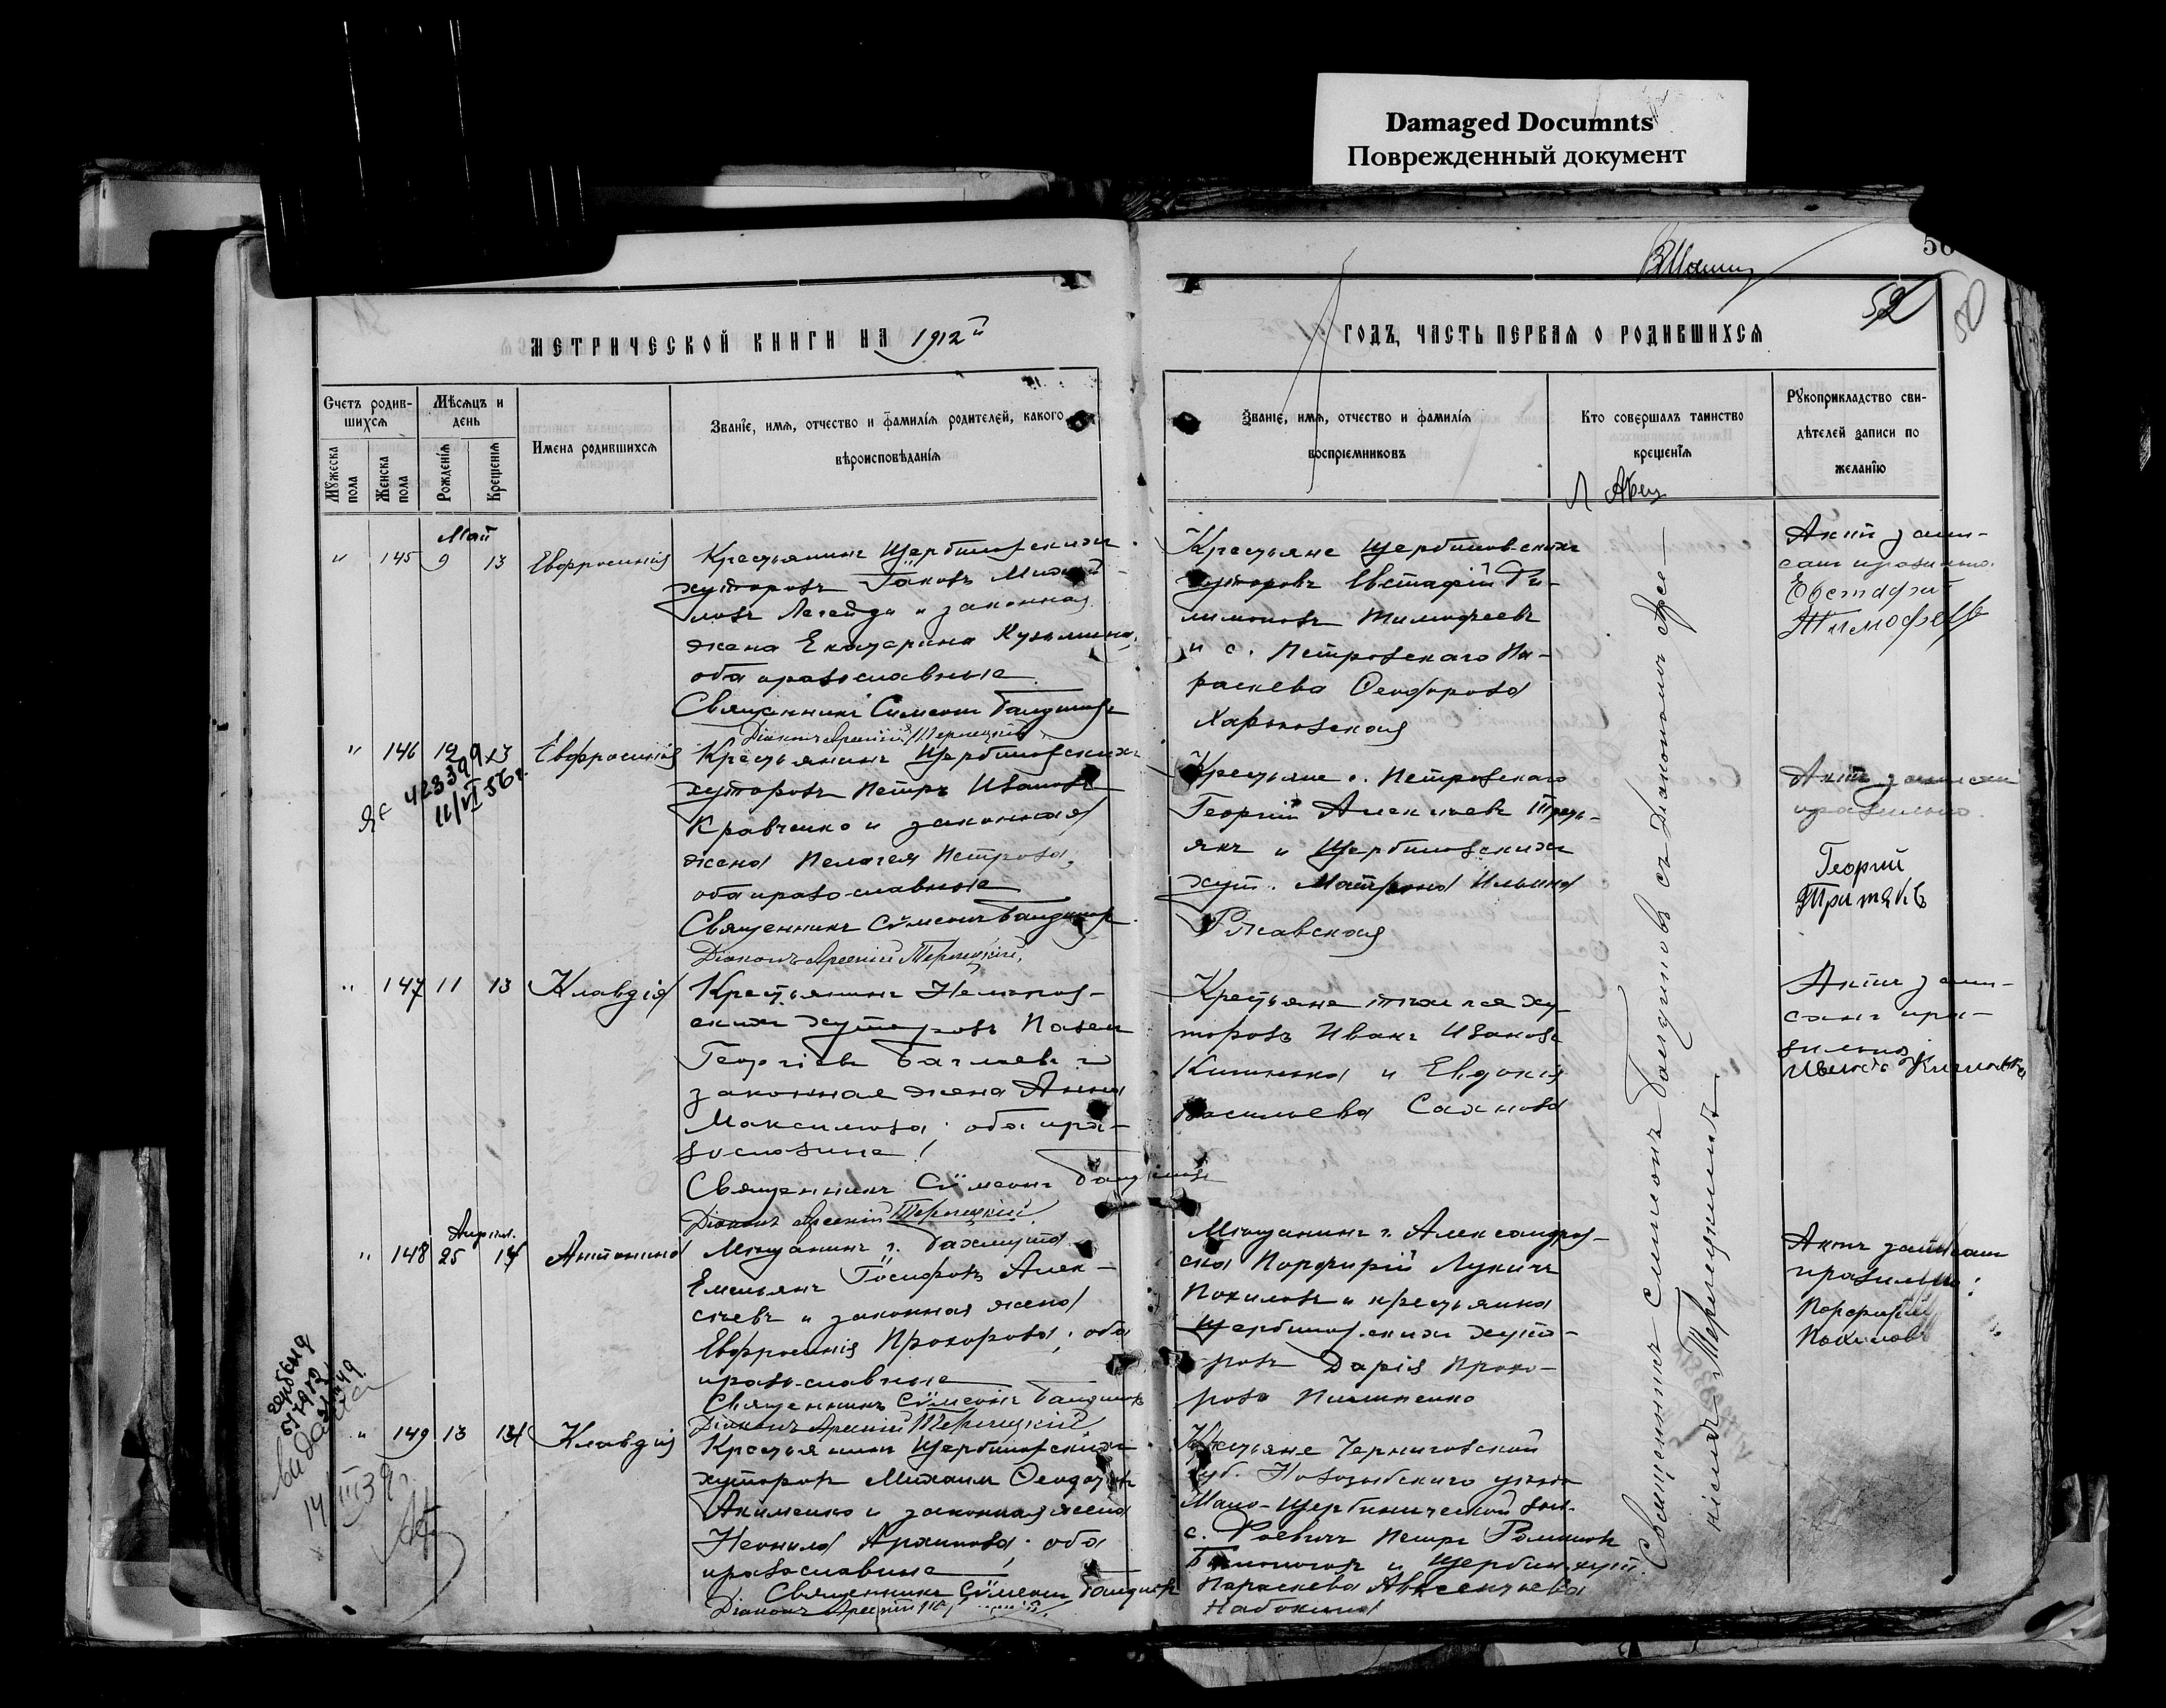 Damaged Documnts
Поврежденный документ
52
50
МЕТРИЧЕСКОЙ КНИГИ НА 1912й
ГОДЪ, ЧАСТЬ ПЕРВАЯ О РОДИВШИХСЯ
Счетъ родив-
шихся
Мужеска
пола
Женска
пола
Мѣсяцъ и
день
Рожденія
Крещенія
Имена родившихся
Званіе, имя, отчество и фамилія родителей, какого
вѣроисповѣданія
Званіе, имя, отчество и фамилія
воспріемниковъ
Кто совершалъ таинство
крещенія
Рукоприкладство сви-
дѣтелей записи по
желанію
Май
" 145 9 13 Евфросинія
Крестьянинъ Щербиновскихъ
хуторовъ Іаковъ Михай-
ловъ Легейда и законная
жена Екатерина Кузьмина,
оба православные
Священникъ Симеонъ Бандиновъ
Діаконъ Арсеній
Крестьяне Щербиновскихъ
хуторовъ Евстафій Фи-
лимоновъ Тимофеевъ
и с. Петровскаго Па-
раскева Феодорова
Харьковская
Актъ запи-
санъ правильно.
Евстафій
Тимофеевъ
" 146 12 13 Евфросинія
423399
11/VI 56г.
Крестьянинъ Щербиновскихъ
хуторовъ Петръ Ивановъ
Кравченко и законная
жена Пелагея Петрова,
оба православные
Священникъ Сѵмеонъ Бандиновъ
Діаконъ Арсеній
Крестьяне с. Петровскаго
Георгій Алексѣевъ
и Щербиновскихъ
хут. Матрона Ильина
Ржавская
Актъ записанъ
правильно.
Георгій
" 147 11 13 Клавдія
Крестьянинъ
скихъ хуторовъ Павелъ
Георгіевъ и
законная жена Анна
Максимова; оба пра-
вославные
Священникъ Сѵмеонъ Бандиновъ
Діаконъ Арсеній
Крестьяне тѣхъ же ху-
торовъ Иванъ Ивановъ
и Евдокія
Васильева Сахнова
Актъ запи-
санъ пра-
вильно
Апрѣль.
" 148 25 Антонина
Мѣщанинъ г. Бахмута
Емельянъ Іосифовъ Алек-
сѣевъ и законная жена
Евфросинія Прохорова; оба
православные
Священникъ Сѵмеонъ Бандиновъ
Діаконъ Арсеній
Мѣщанинъ г. Александров-
ска Порфирій Лукичъ
Похиловъ и крестьянка
Щербиновскихъ хуто-
ровъ Дарія Прохо-
рова
Актъ записанъ
правильно:
Порфирій
Похиловъ
" 149 13 Клавдія
выдана
14 III 39г.
Крестьянинъ Щербиновскихъ
хуторовъ Михаилъ Феодоровъ
Акименко и законная жена
Неонила Архипова; оба
православные
Священникъ Сѵмеонъ Бандиновъ
Діаконъ Арсеній
Крестьяне Черниговской
губ. Новозыбскаго уѣзда
Мало-Щербиничской вол.
с. Петръ
и Щербин. хут.
Параскева Авксентьева
Священникъ Симеонъ Бандиновъ съ Діакономъ Арсе-
ніемъ